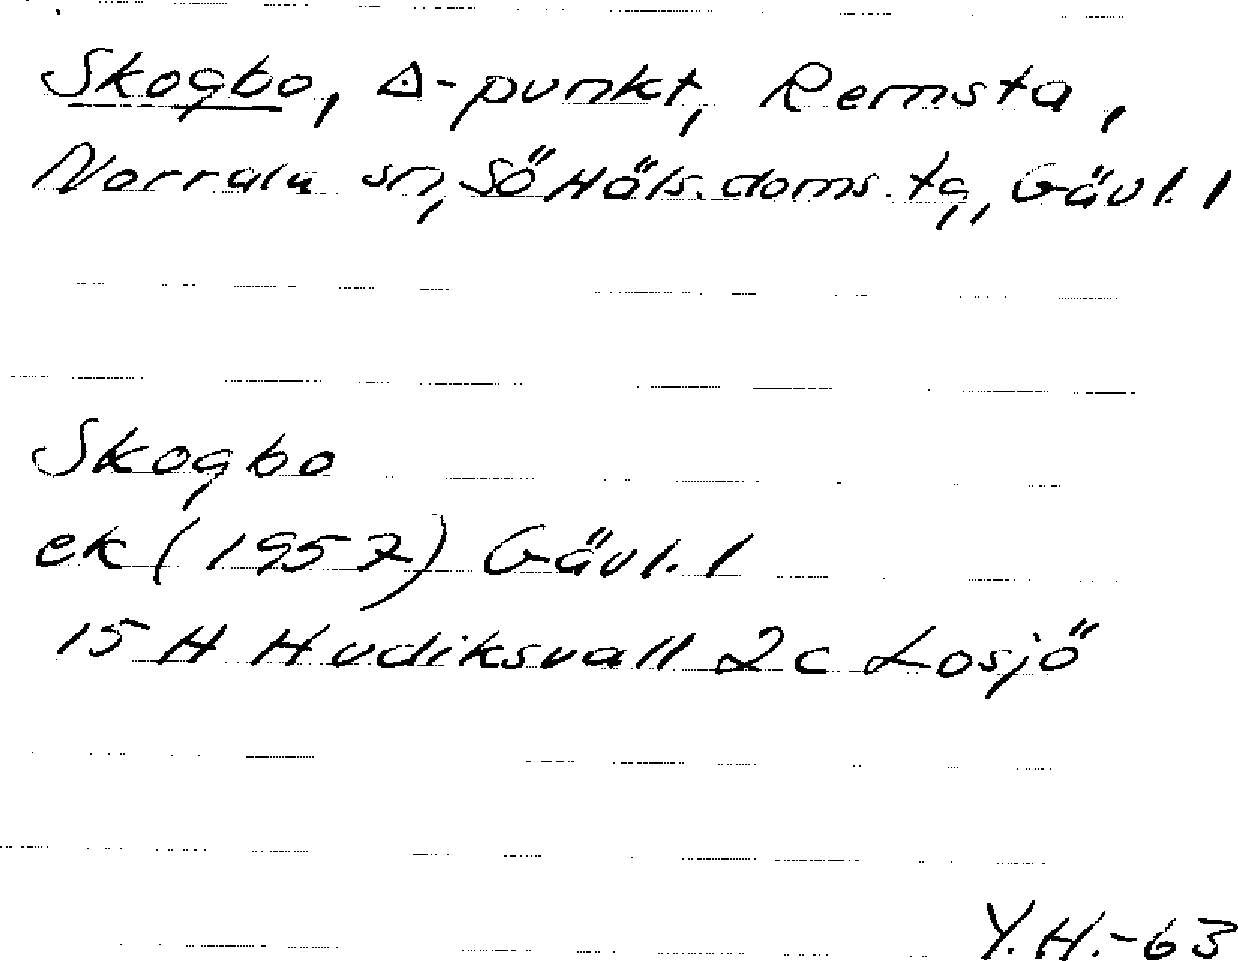 Skogbo, △-punkt, Remsta,
Norrala sn, Sö Häls. doms. tg, Gävl. l
Skogbo
ek (1957) Gävl. l
15 H Hudiksvall 2c Losjö
Y.H.-63